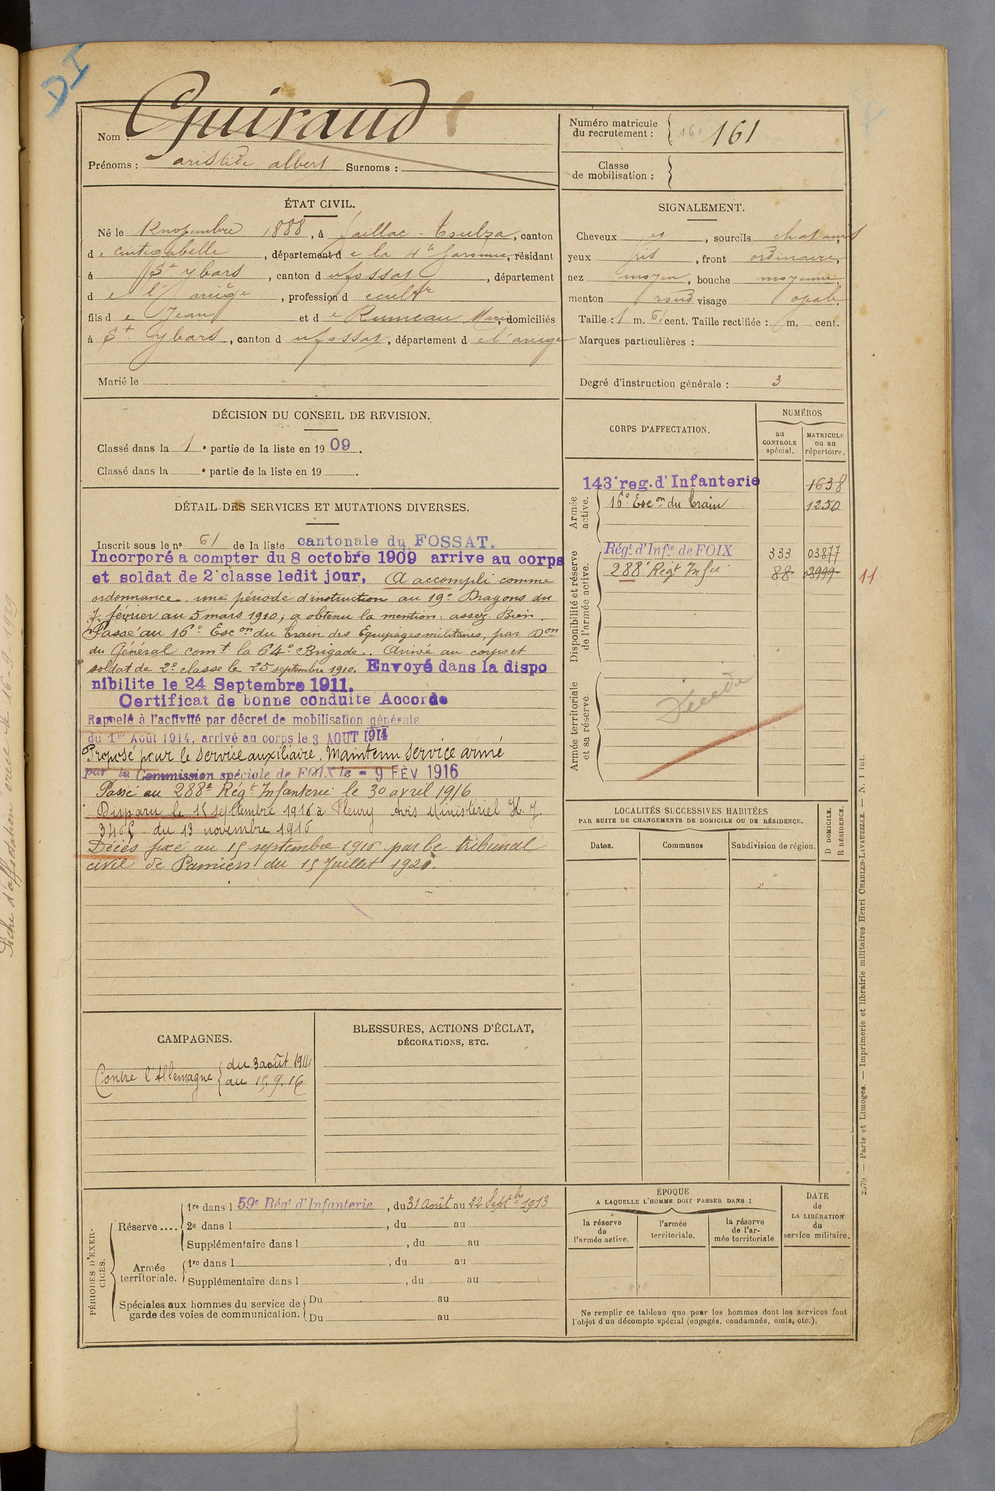 DI
Nom : Guiraud
Prénoms : aristide albert Surnoms :
Numéro matricule du recrutement : 161 161
Classe de mobilisation :
ÉTAT CIVIL.
Né le 12 novembre 1888, à Gaillac-Toulza, canton
d e Cintegabelle, département d e la Hte Garonne, résidant
à St Ybars, canton d u Fossat, département
d e l'Ariège, profession d cultr
fils d e Jean et d e Rumeau Marie, domiciliés
à St Ybars, canton d u Fossat, département d e l'ariège
Marié le
SIGNALEMENT.
Cheveux et, sourcils chatains
yeux gris, front ordinaire,
nez moyen, bouche moyenne,
menton rond visage opale.
Taille : 1 m. 61 cent. Taille rectifiée : m. cent.
Marques particulières :
Degré d'instruction générale : 3
DÉCISION DU CONSEIL DE REVISION.
Classé dans la 1 e partie de la liste en 1909.
Classé dans la e partie de la liste en 19 .
DÉTAIL DES SERVICES ET MUTATIONS DIVERSES.
Inscrit sous le n° 61 de la liste cantonale du FOSSAT.
Incorporé a compter du 8 octobre 1909 arrive au corps
et soldat de 2e classe ledit jour, A accompli comme
ordonnance, une période d'instruction au 19e Dragons du
7 février au 5 mars 1910, a obtenu la mention : assez Bien.
Passé au 16e Escon du train des Equipages militaires, par Don
du Général comt la 64e Brigade. Arrivé au corps et
soldat de 2e classe le 25 septembre 1910. Envoyé dans la dispo
nibilite le 24 Septembre 1911.
Certificat de bonne conduite Accordé
Rappelé à l'activité par décret de mobilisation générale
du 1er Août 1914, arrivé au corps le 3 AOUT 1914
Proposé pour le Service auxiliaire, Maintenu Service armé
par la Commission spéciale de FOIX le - 9 FÉV 1916
Passé au 288e Régt Infanterie le 30 avril 1916
Disparu le 15 septembre 1916 à Fleury Avis Ministériel H. J
3465 du 13 novembre 1916
Décès fixé au 15 septembre 1916 par le tribunal
civil de Pamiers du 15 Juillet 1920.
CORPS D'AFFECTATION.
NUMÉROS
au CONTROLE spécial.
MATRICULE ou au répertoire.
Armée active.
143e reg. d'Infanterie 1638
16e Escon du train 1250
Disponibilité et réserve de l'armée active.
Régt d'Infie de FOIX 333 03877
288e Régt Infie 88 03999 11
Armée territoriale et sa réserve.
Décédé
LOCALITÉS SUCCESSIVES HABITÉES
PAR SUITE DE CHANGEMENTS DE DOMICILE OU DE RÉSIDENCE.
Dates. Communes Subdivision de région. D DOMICILE. R RÉSIDENCE.
CAMPAGNES.
Contre l'Allemagne du 3 août 1914
au 15.9.16
BLESSURES, ACTIONS D'ÉCLAT,
DÉCORATIONS, ETC.
PÉRIODES D'EXERCICES.
Réserve ....
1re dans l 59e Régt d'Infanterie, du 31 août au 22 Septbre 1913
2e dans l , du au
Supplémentaire dans l , du au
Armée territoriale.
1re dans l , du au
Supplémentaire dans l , du au
Spéciales aux hommes du service de garde des voies de communication.
Du au
Du au
ÉPOQUE
A LAQUELLE L'HOMME DOIT PASSER DANS :
la réserve de l'armée active.
l'armée territoriale.
la réserve de l'armée territoriale
DATE de LA LIBÉRATION du service militaire.
Ne remplir ce tableau que pour les hommes dont les services font
l'objet d'un décompte spécial (engagés, condamnés, omis, etc.).
Paris et Limoges. — Imprimerie et librairie militaires Henri CHARLES-LAVAUZELLE. — N. 1 int.